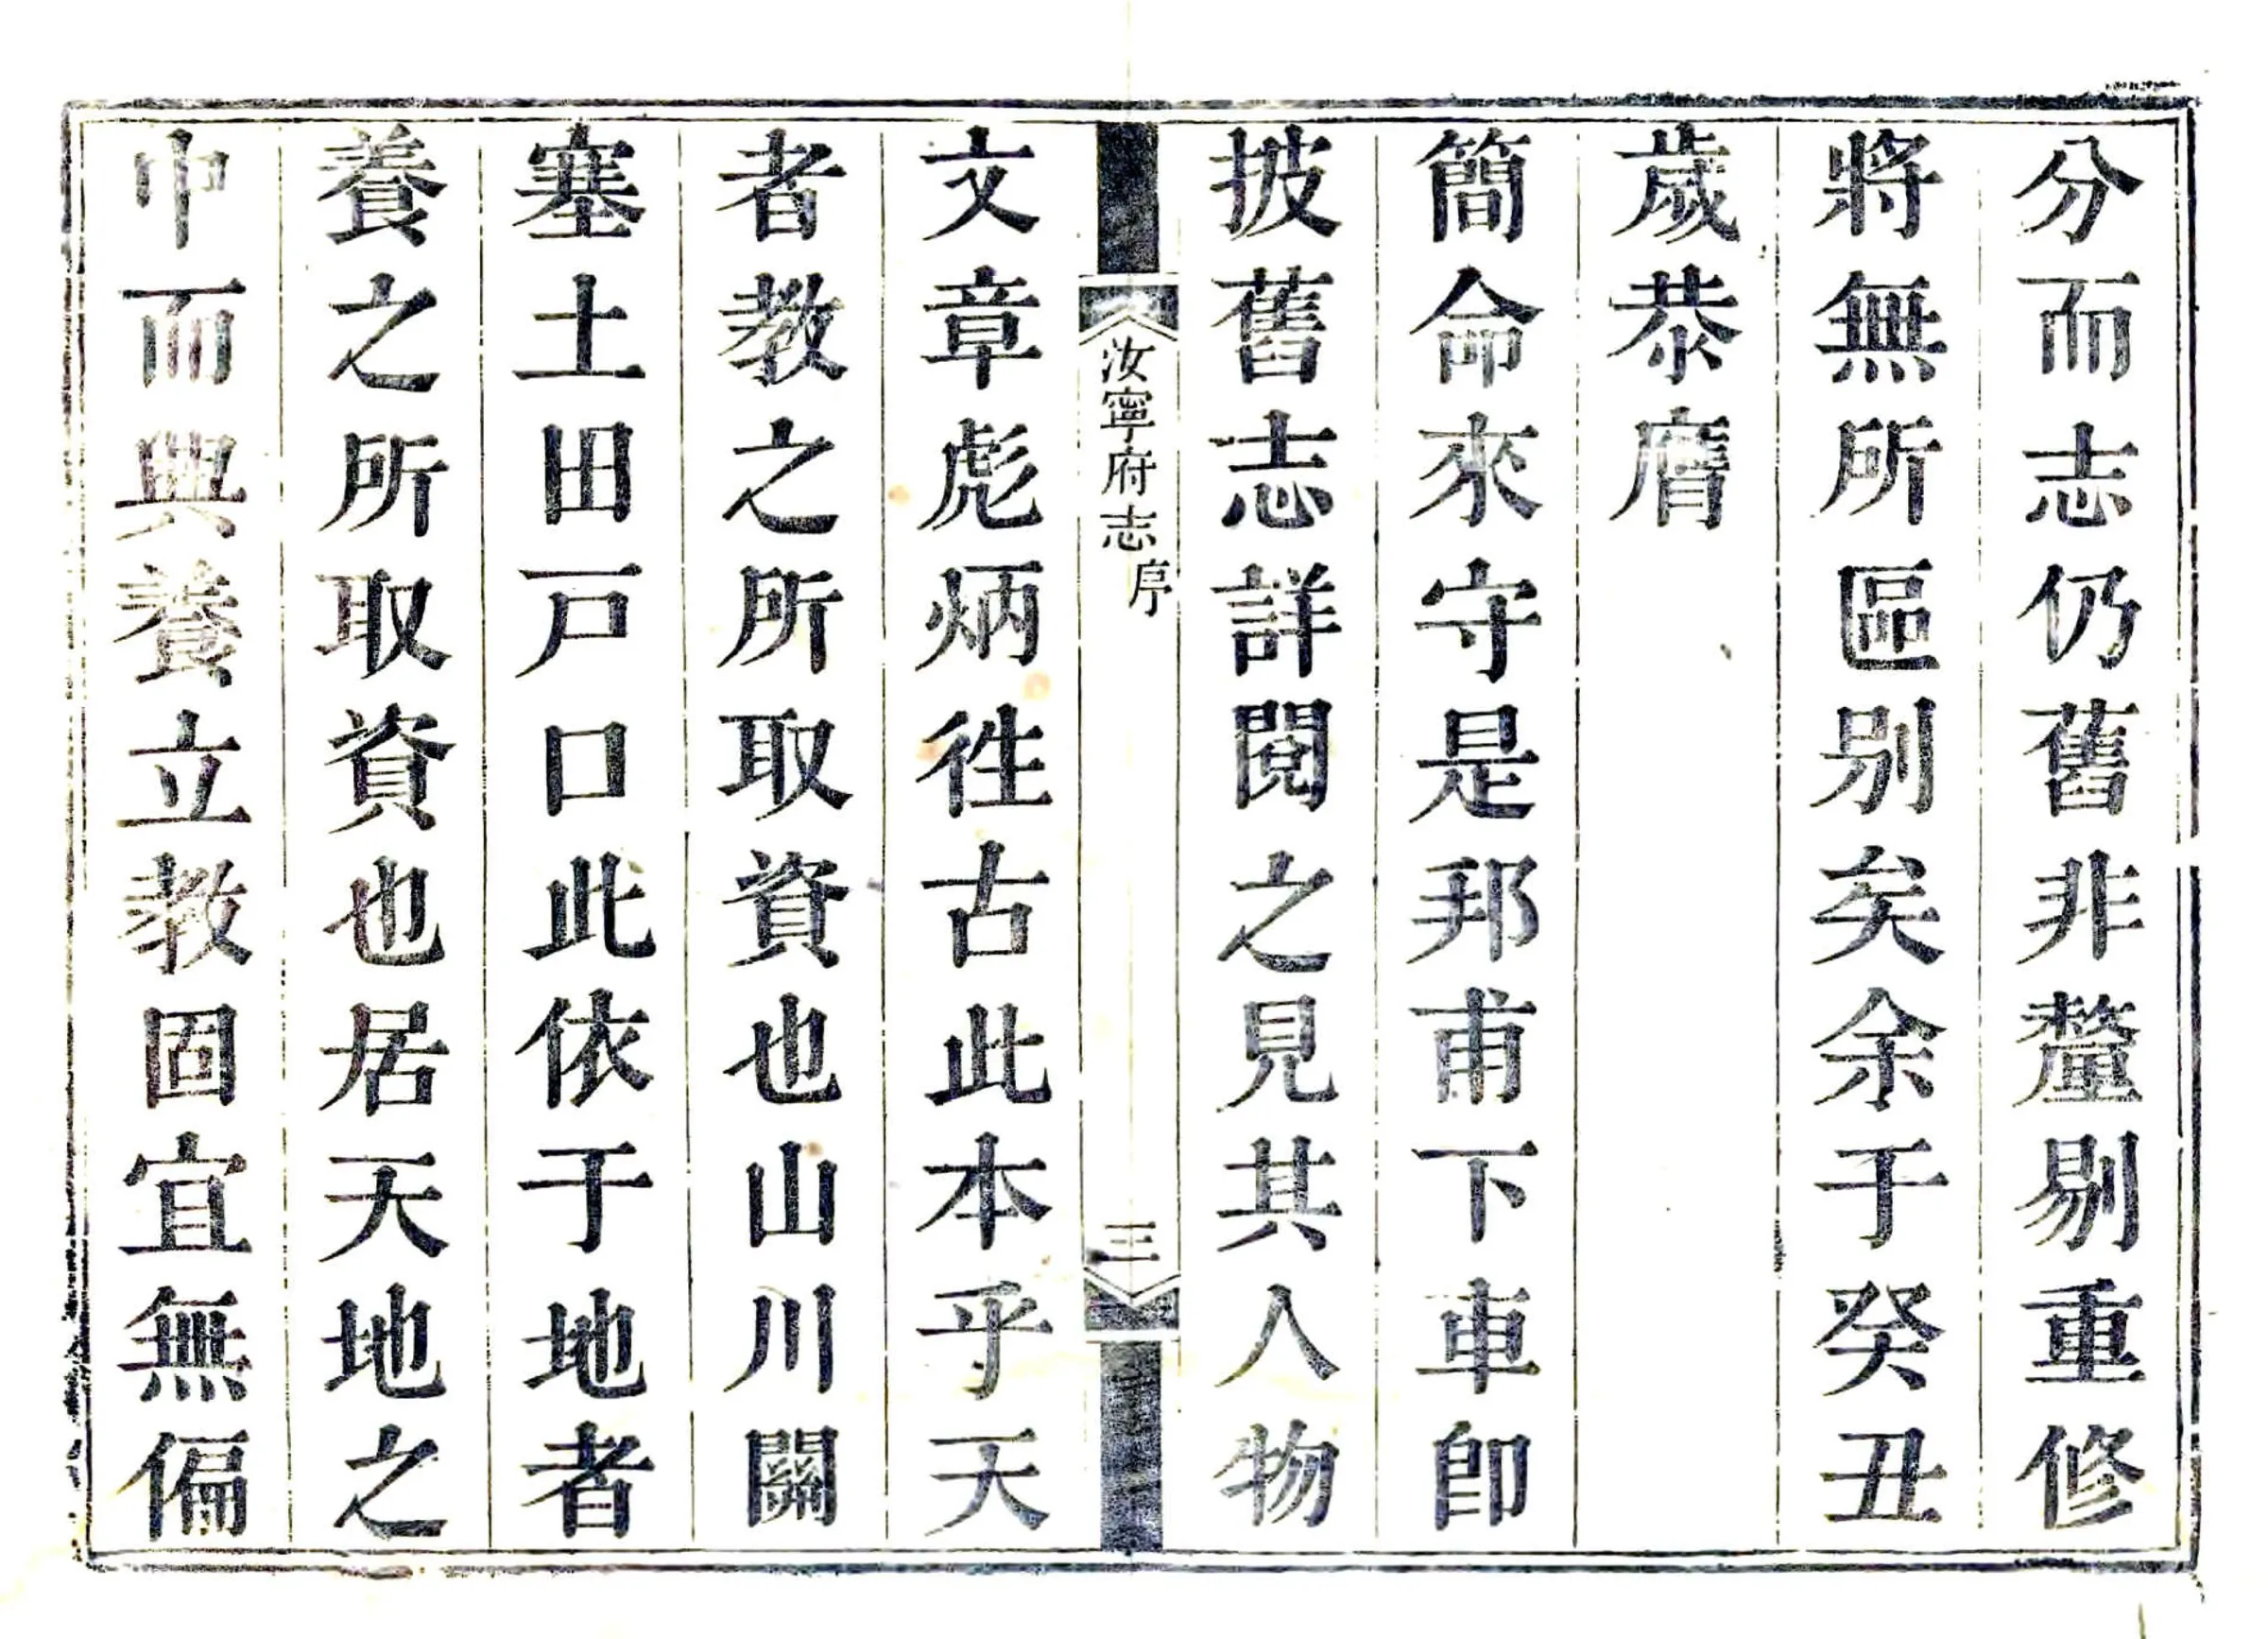 分而志仍舊非釐剔重修
將無所區别矣余于癸丑
歲恭膺
簡命來守是邦甫下車卽
披舊志詳閱之見其人物
汝寧府志 序 三
文章彪炳徃古此本乎天
者教之所取資也山川關
塞土田戸口此依于地者
養之所取資也居天地之
中而興養立教固宜無偏